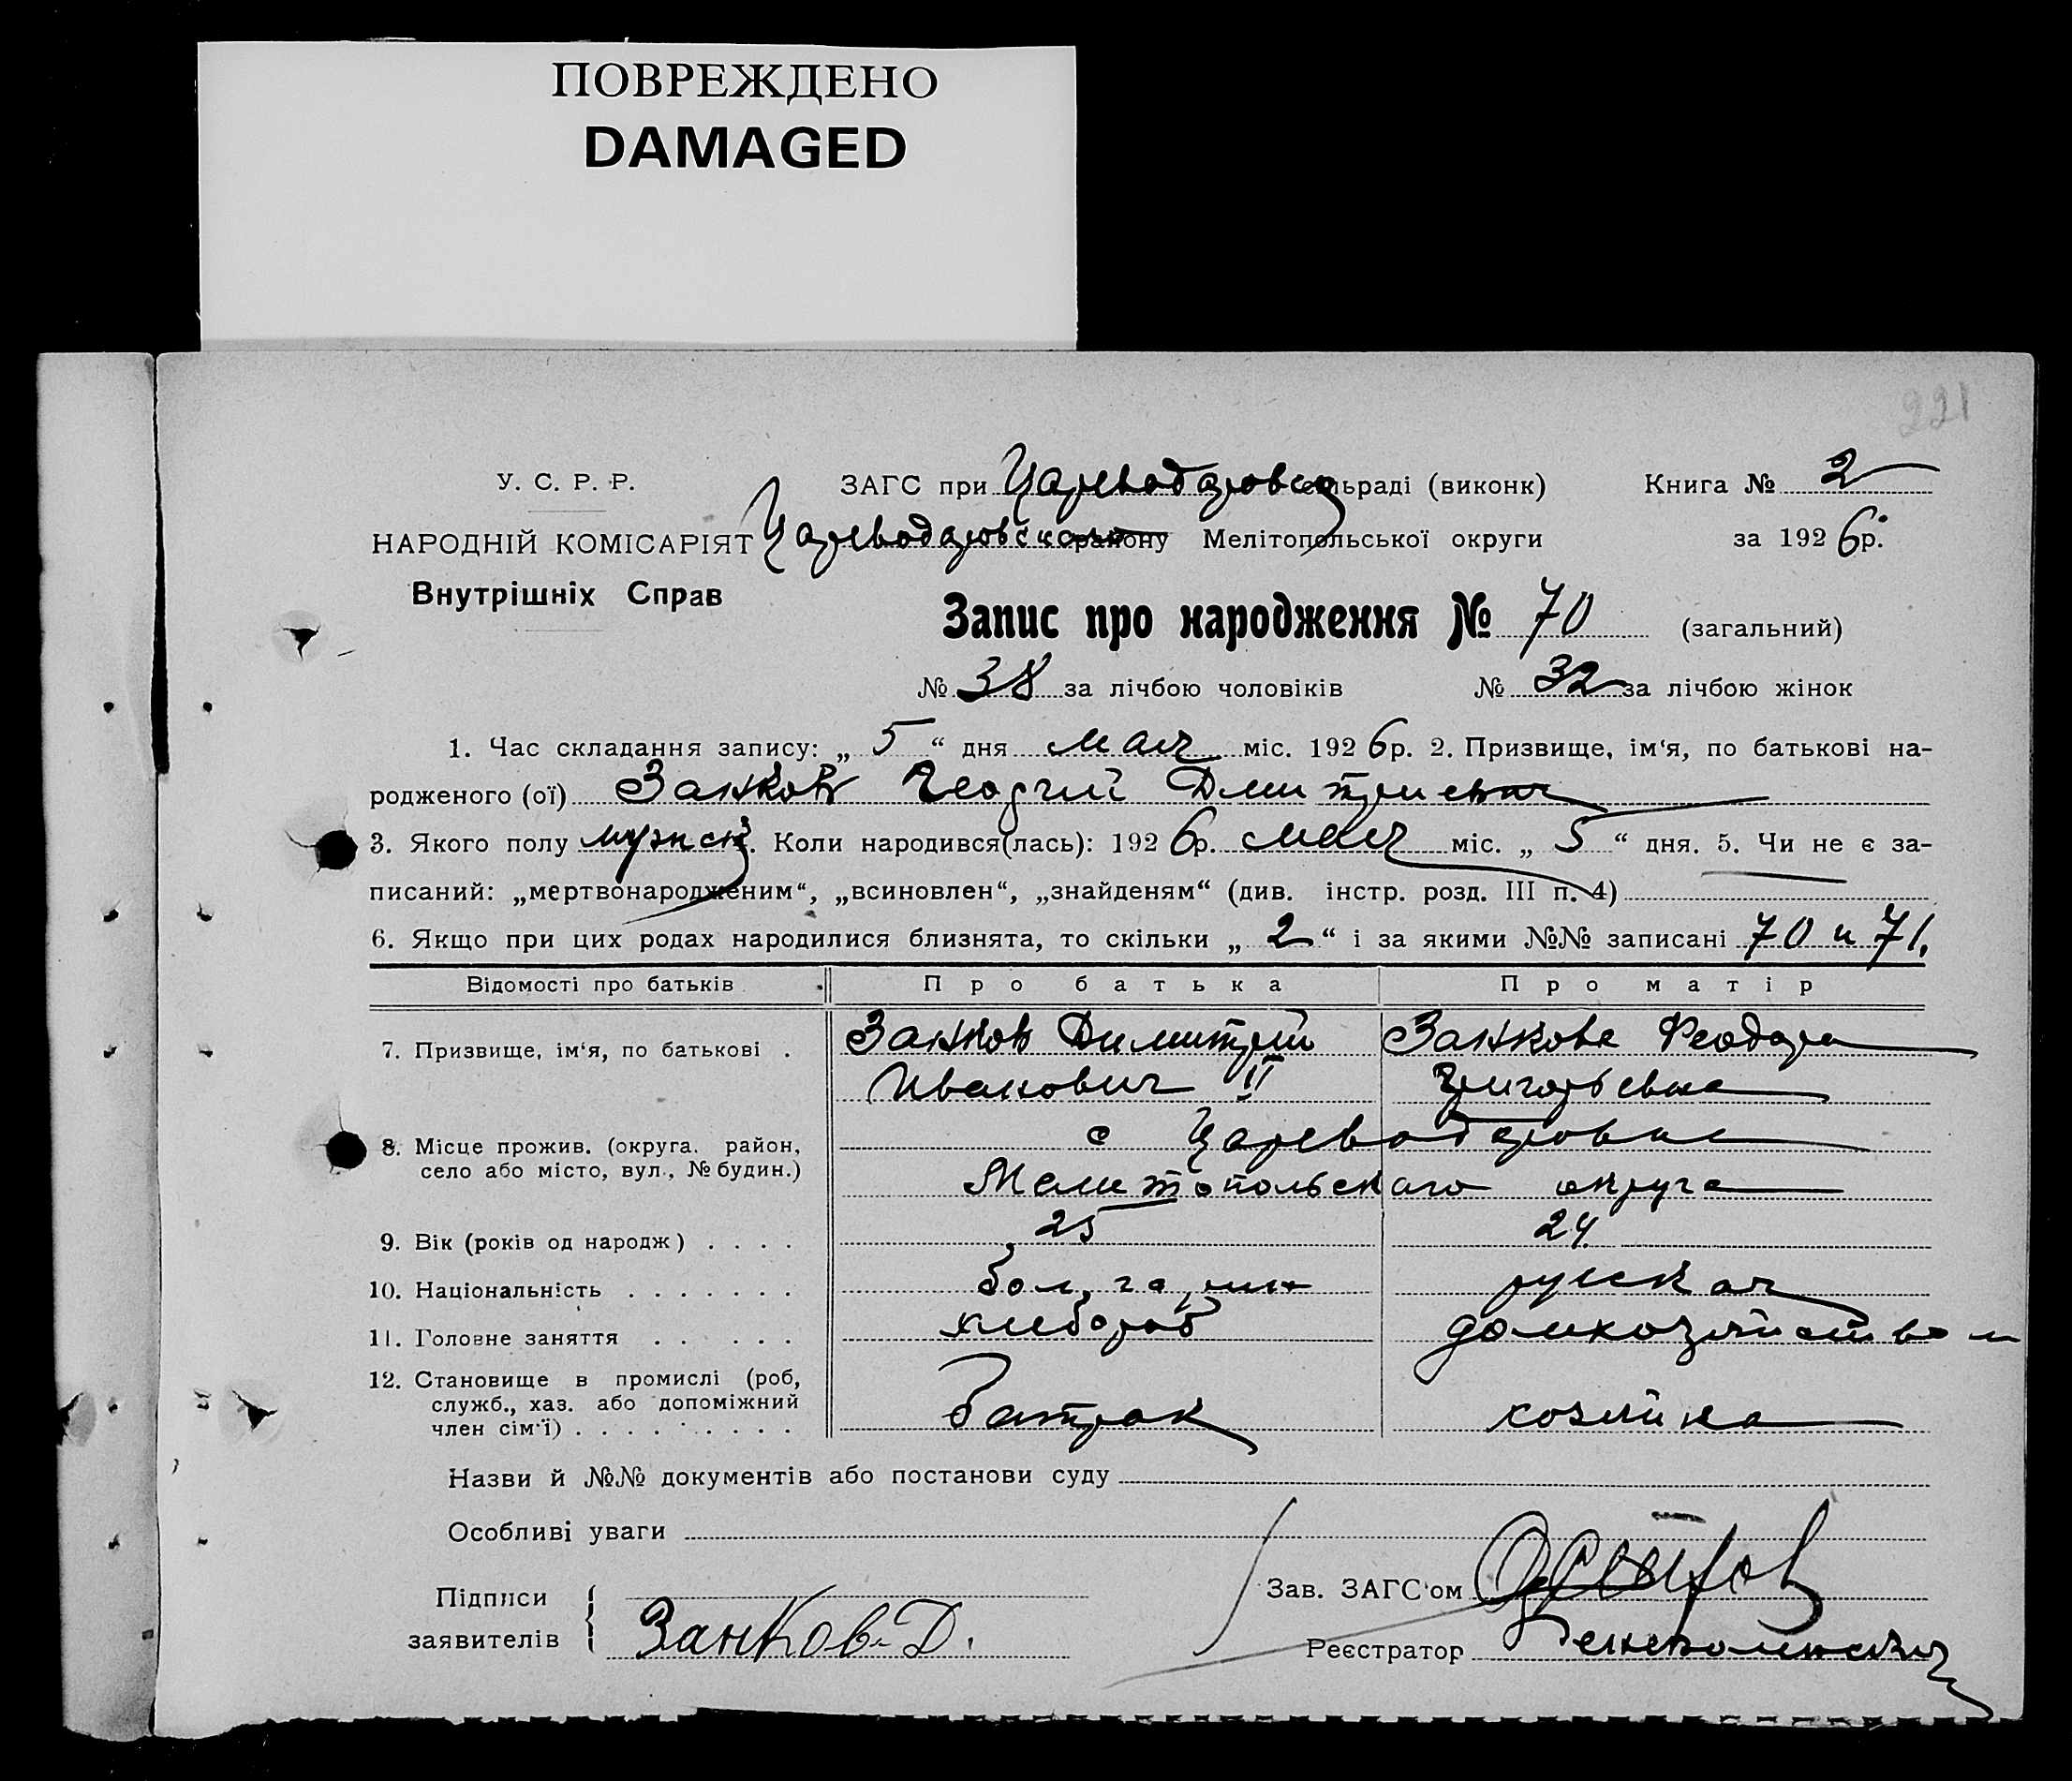 ПОВРЕЖДЕНО
DAMAGED
221
У. С. Р. Р.
ЗАГС при Цареводаровск сельраді (виконк)
Книга № 2
НАРОДНІЙ КОМІСАРІЯТ
Цареводаровского району Мелітопольської округи
за 1926 р.
Внутрішніх Справ
Запис про народження № 70 (загальний)
№ 38 за лічбою чоловіків № 32 за лічбою жінок
1. Час складання запису: „ 5 “ дня мая міс. 1926 р. 2. Призвище, ім‘я, по батькові на-
родженого (ої) Занков Георгий Дмитриевич
3. Якого полу мужск. Коли народився(лась): 1926 р. мая міс. „ 5 “ дня. 5. Чи не є за-
писаний: „мертвонародженим“, „всиновлен“, „знайденям“ (див. інстр. розд. III п. 4)
6. Якщо при цих родах народилися близнята, то скільки „ 2 “ і за якими №№ записані 70 и 71.
Відомості про батьків Про батька Про матір
7. Призвище, ім‘я, по батькові . Занков Димитрий Занкова Феодора
Иванович II Григорьевна
8. Місце прожив. (округа, район, с Цареводаровка
село або місто, вул., № будин.) Мелитопольскаго округа
9. Вік (років од народж) . . . . 25 24
10. Національність . . . . . . . болгарин русская
11. Головне заняття . . . . . хлебороб домхозяйством
12. Становище в промислі (роб,
служб., хаз. або допоміжний
член сім‘ї) . . . . . . . . . батрак хозяйка
Назви й №№ документів або постанови суду
Особливі уваги
Підписи
заявителів
Занков Д.
Зав. ЗАГС‘ом
Реєстратор